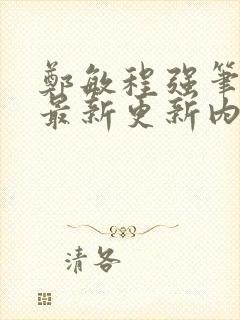 鄭敏程强筆
最新更新内
清各